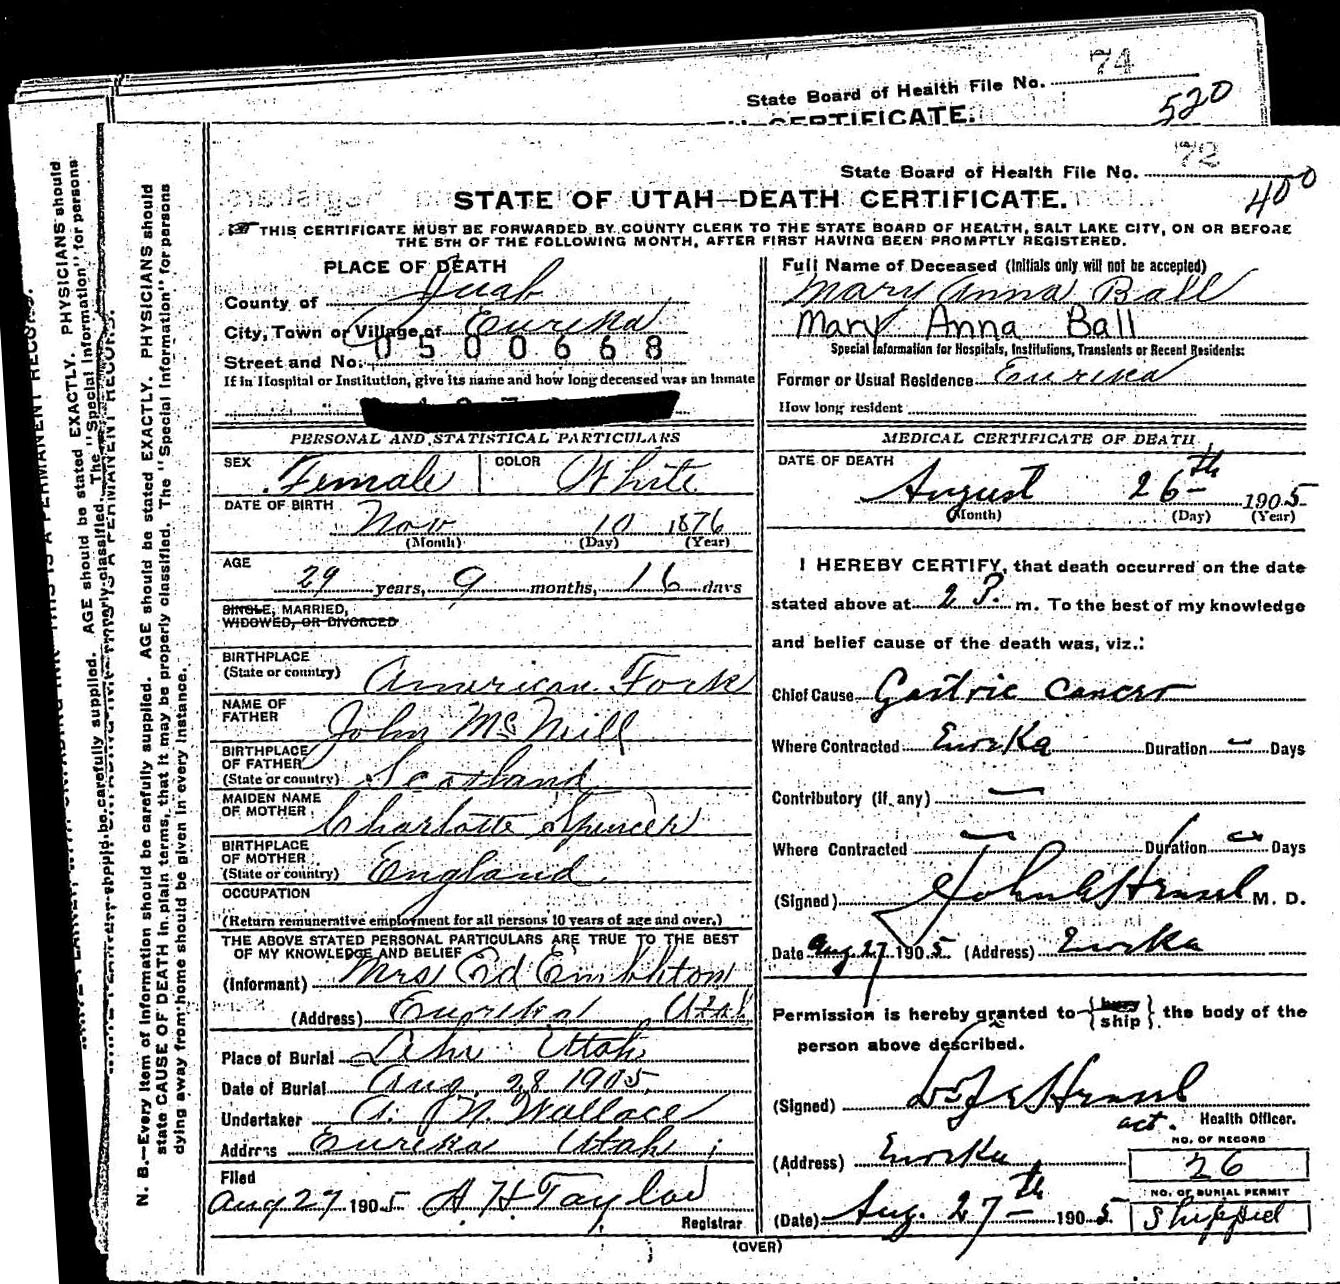 State Board of Health File No. 74
520
CERTIFICATE.
State Board of Health File No. 72
400
STATE OF UTAH—DEATH CERTIFICATE.
THIS CERTIFICATE MUST BE FORWARDED BY COUNTY CLERK TO THE STATE BOARD OF HEALTH, SALT LAKE CITY, ON OR BEFORE
THE 5TH OF THE FOLLOWING MONTH, AFTER FIRST HAVING BEEN PROMPTLY REGISTERED.
PLACE OF DEATH
County of Juab
City, Town or Village of Eureka
0500668
Street and No.
If in Hospital or Institution, give its name and how long deceased was an inmate
PERSONAL AND STATISTICAL PARTICULARS
SEX Female COLOR White
DATE OF BIRTH Nov 10 1876
(Month) (Day) (Year)
AGE 29 years, 9 months, 16 days
SINGLE, MARRIED,
WIDOWED, OR DIVORCED
BIRTHPLACE
(State or country) American Fork
NAME OF
FATHER John McNeill
BIRTHPLACE
OF FATHER
(State or country) Scotland
MAIDEN NAME
OF MOTHER Charlotte Spencer
BIRTHPLACE
OF MOTHER
(State or country) England
OCCUPATION
(Return remunerative employment for all persons 10 years of age and over.)
THE ABOVE STATED PERSONAL PARTICULARS ARE TRUE TO THE BEST
OF MY KNOWLEDGE AND BELIEF
(Informant) Mrs Ed Embleton
(Address) Eureka Utah
Place of Burial Lehi Utah
Date of Burial Aug 28 1905
Undertaker A. N. Wallace
Address Eureka Utah
Filed
Aug 27 1905 A H Taylor
Registrar
Full Name of Deceased (Initials only will not be accepted)
Mary Anna Ball
Mary Anna Ball
Special Information for Hospitals, Institutions, Transients or Recent Residents:
Former or Usual Residence Eureka
How long resident
MEDICAL CERTIFICATE OF DEATH
DATE OF DEATH
August 26th 1905
(Month) (Day) (Year)
I HEREBY CERTIFY, that death occurred on the date
stated above at 2 P. m. To the best of my knowledge
and belief cause of the death was, viz.:
Chief Cause Gastric Cancer
Where Contracted Eureka Duration — Days
Contributory (if any) —
Where Contracted — Duration — Days
(Signed) John Hensel M. D.
Date Aug 27 1905 (Address) Eureka
Permission is hereby granted to {bury ship} the body of the
person above described.
(Signed) Hensel
act. Health Officer.
(Address) Eureka
NO. OF RECORD
26
NO. OF BURIAL PERMIT
Shipped
(Date) Aug. 27th 1905
(OVER)
N. B.—Every item of information should be carefully supplied. AGE should be stated EXACTLY. PHYSICIANS should
state CAUSE OF DEATH in plain terms, that it may be properly classified. The "Special Information" for persons
dying away from home should be given in every instance.